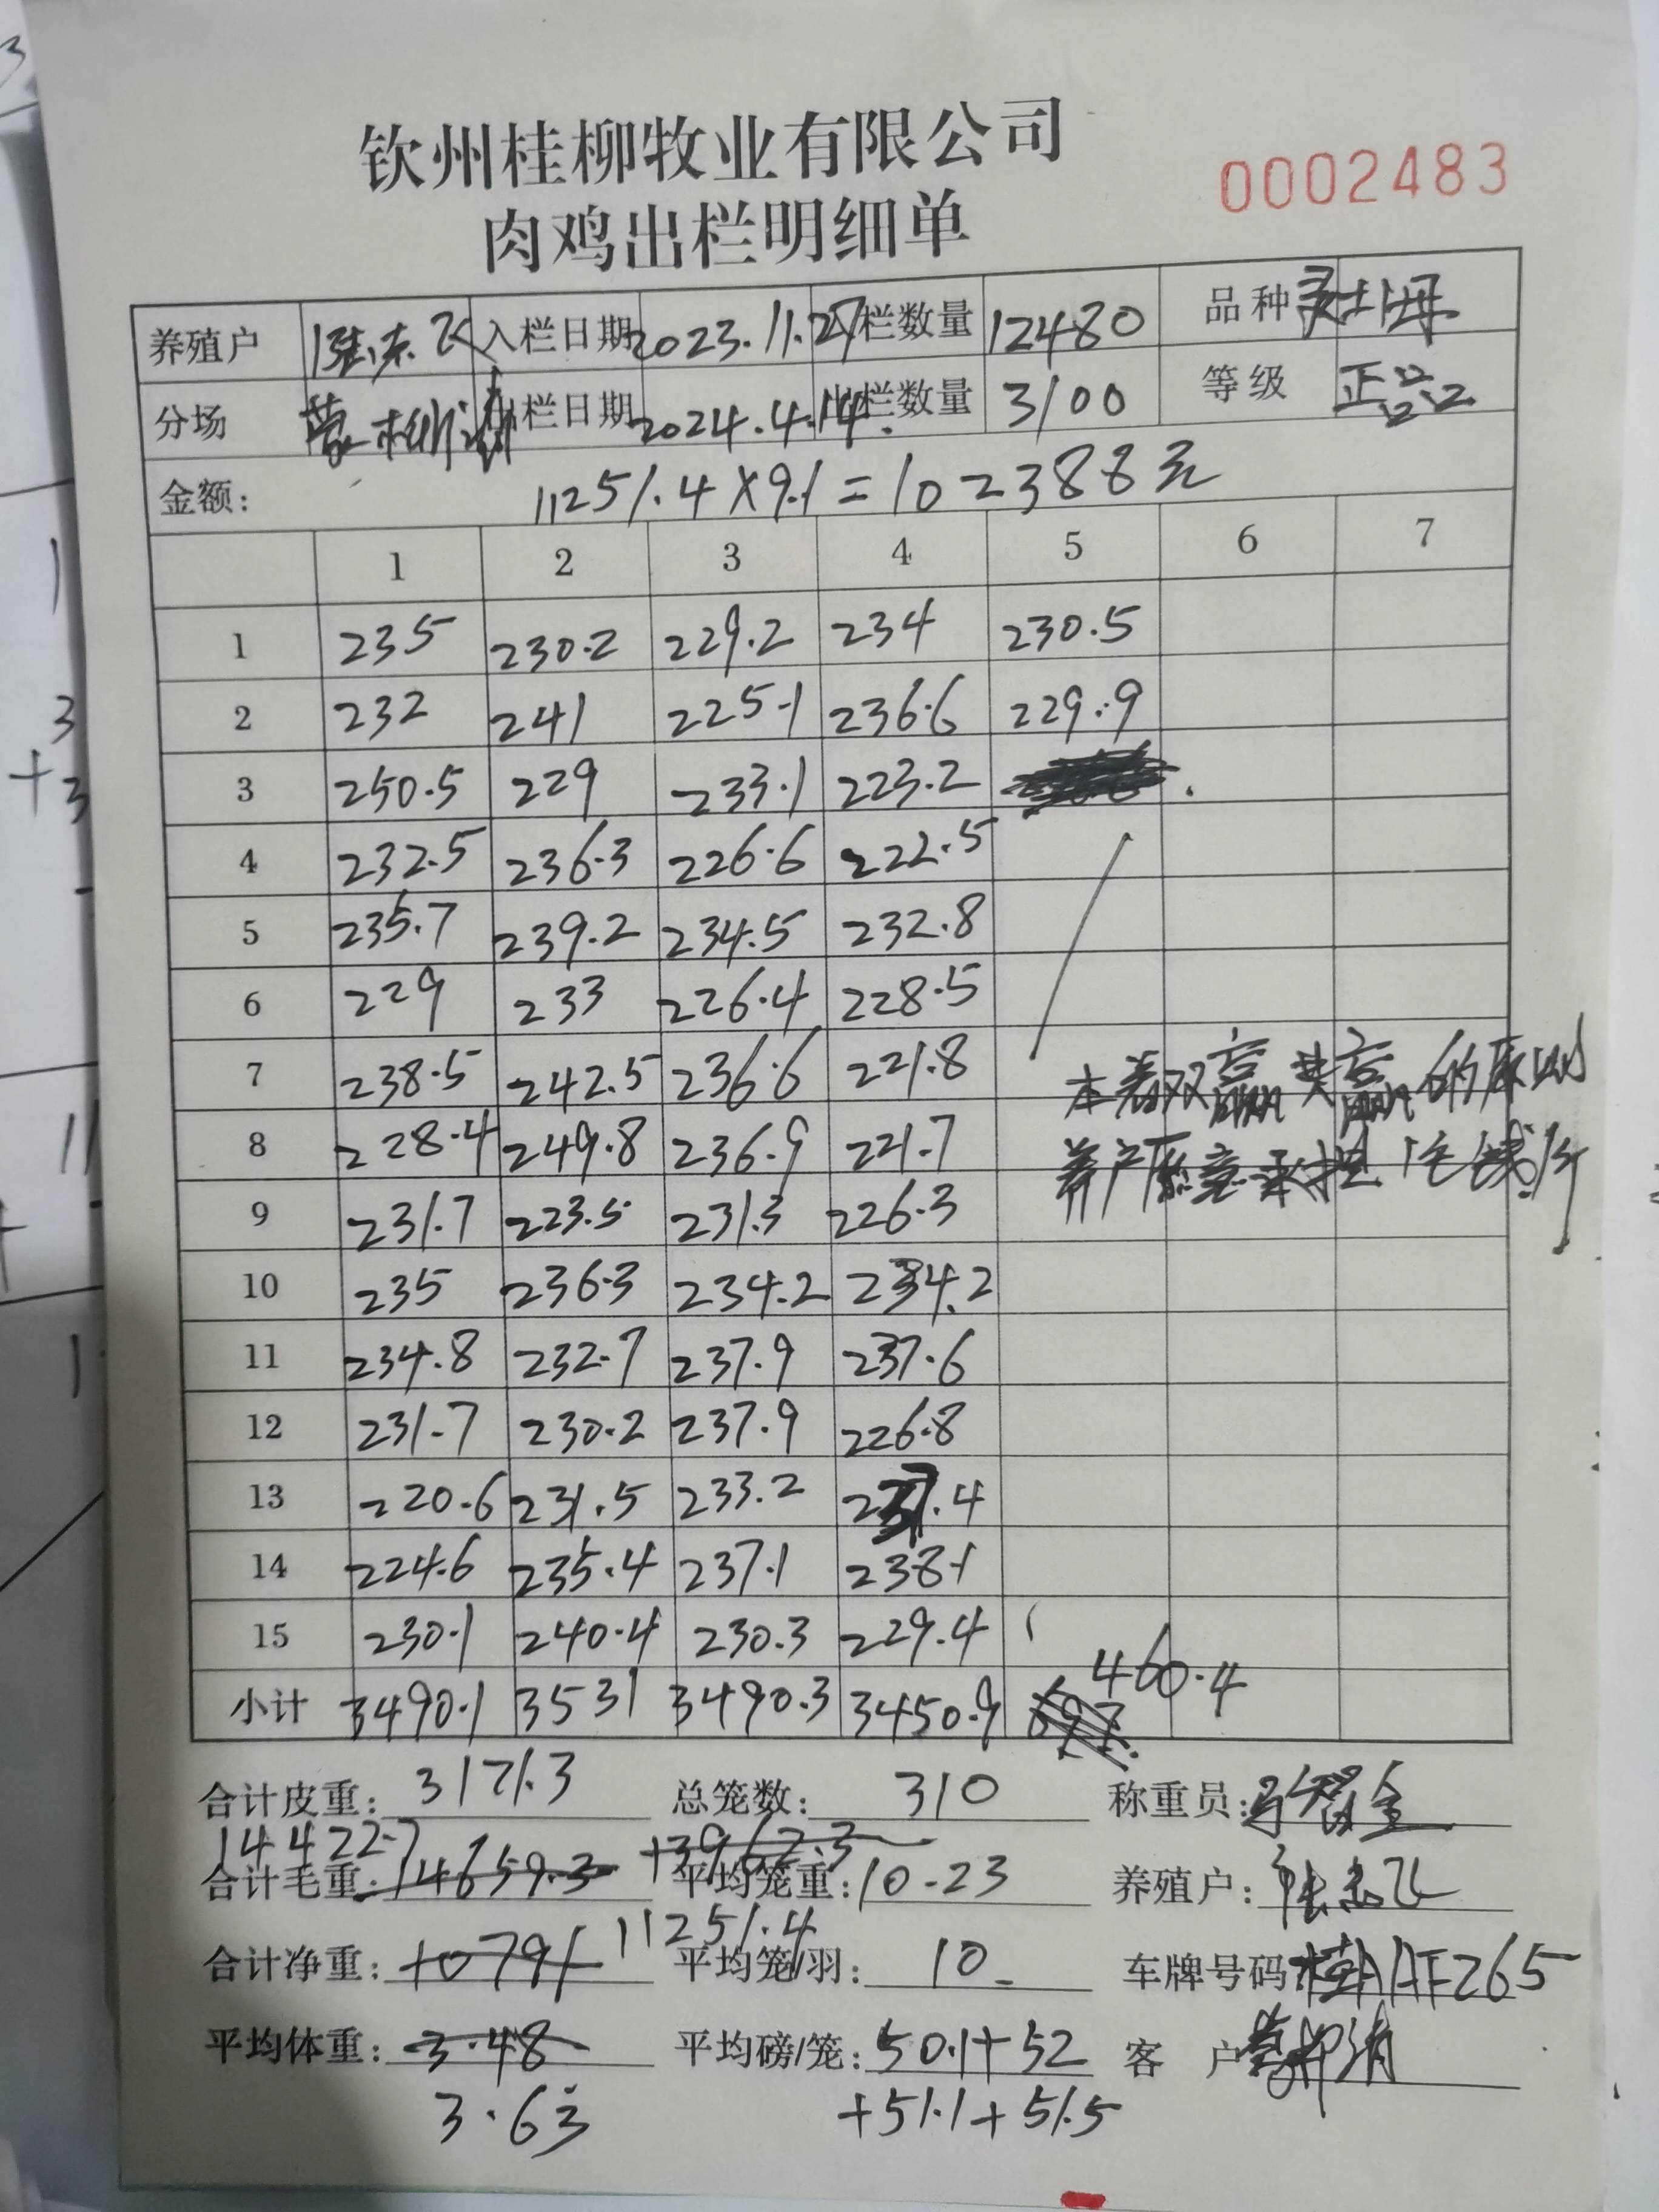 钦州桂柳牧业有限公司
0002483
肉鸡出栏明细单
养殖户 入栏日期 2023.11.27 入栏数量 12480 品种 灵土1母
分场 出栏日期 2024.4.14. 出栏数量 3100 等级 正品
金额: 11251.4×9.1=102388元
1 2 3 4 5 6 7
1 235 230.2 229.2 234 230.5
2 232 241 225.1 236.6 229.9
3 250.5 229 233.1 223.2
4 232.5 236.3 226.6 222.5
5 235.7 239.2 234.5 232.8
6 229 233 226.4 228.5
7 238.5 242.5 236.6 221.8
8 228.4 249.8 236.9 221.7
9 231.7 223.5 231.3 226.3
10 235 236.3 234.2 234.2
11 234.8 232.7 237.9 237.6
12 231.7 230.2 237.9 226.8
13 220.6 231.5 233.2 237.4
14 224.6 235.4 237.1 238.1
15 230.1 240.4 230.3 229.4
本着双赢共赢的原则
养户愿意承担1毛钱/斤
小计 3490.1 3531 3490.3 3450.9 697. 460.4
合计皮重: 3171.3 总笼数: 310 称重员:
14422.7 +3962.3
合计毛重: 14659.3 平均笼重: 10.23 养殖户:
11251.4
合计净重: 10791 平均笼/羽: 10 车牌号码: 桂AAF265
平均体重: 3.48 平均磅/笼: 50.1+52 客户
3.63 +51.1+51.5